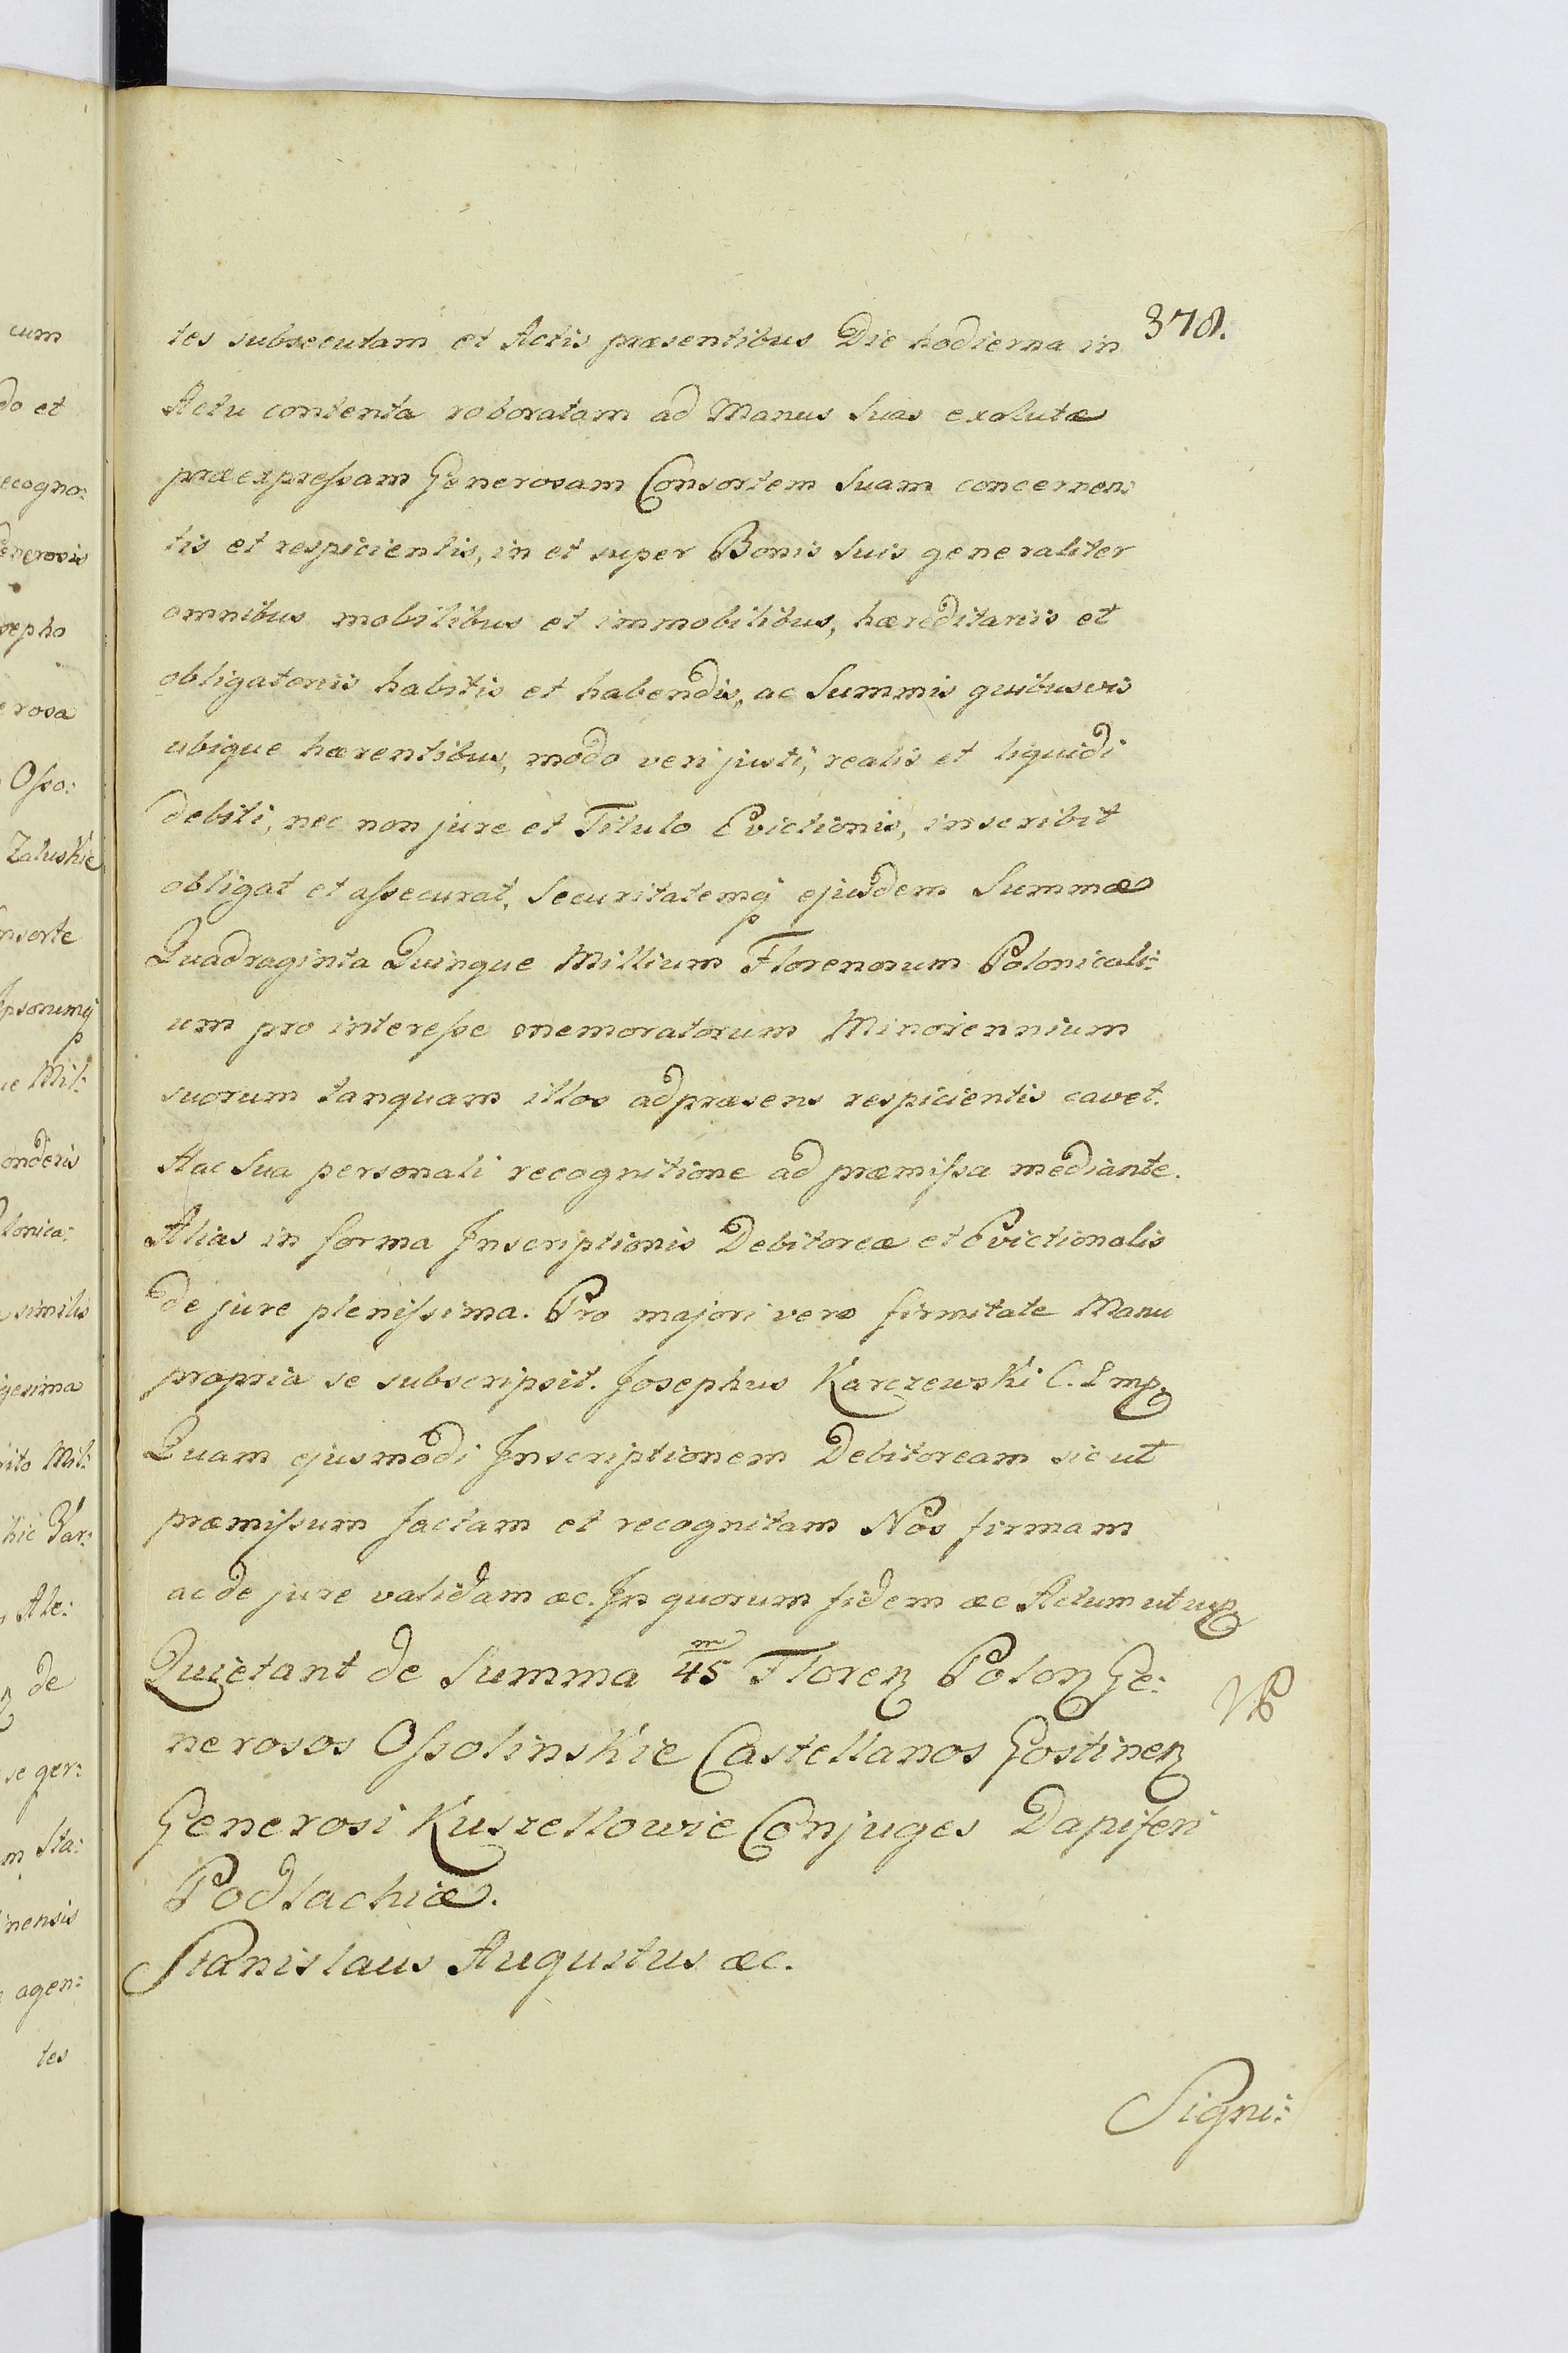 378.
tes subsecutam et Actis præsentibus Die hodierna in
Actu contenta roboratam ad Manus Suas exolutæ
præexpreſsam Generosam Consortem Suam concernen:
tis et respicientis, in et super Bonis Suis generaliter
omnibus mobilibus et immobilibus, hæreditariis et
obligatoriis habitis et habendis, ac Summis quibusvis
ubique hærentibus, modo veri justi, realis et liquidi
debiti, nec non jure et Titulo Evictionis, inscribit
obligat et aſsecurat, Securitatemq; ejusdem Summæ
Quadraginta Quinque Millium Florenorum Polonicali:
um pro intereſse memoratorum Minorennium
suorum tanquam illos adpræsens respicientis cavet.
Hac Sua personali recognitione ad præmiſsa mediante.
Alias in forma Inscriptionis Debitoreæ et Evictionalis
de jure pleniſsima. Pro majori vero firmitate Manu
propria se subscripsit. Josephus Karczewski C. L mp.
Quam ejusmodi Inscriptionem Debitoream sic ut
præmiſsum factam et recognitam Nos firmam
ac de jure validam æc. In quorum fidem æc Actum ut up
Quietant de Summa 45 m Floren Polon Ge:
nerosos Oſsolinskie Castellanos Gostinen
Generosi Kuszellowie Conjuges Dapiferi
Podlachiæ.
Stanislaus Augustus æc.
Signi:
cum
do et
ecogno:
enerosis
osepho
erosa
Oſso:
Zaluskie
nsorte
Ipsorumq;
ue Mil:
onderis
lonica:
similis
gesima
rito Mil:
hic Var:
Ale:
de
se ger:
m Sta:
inensis
agen:
tes